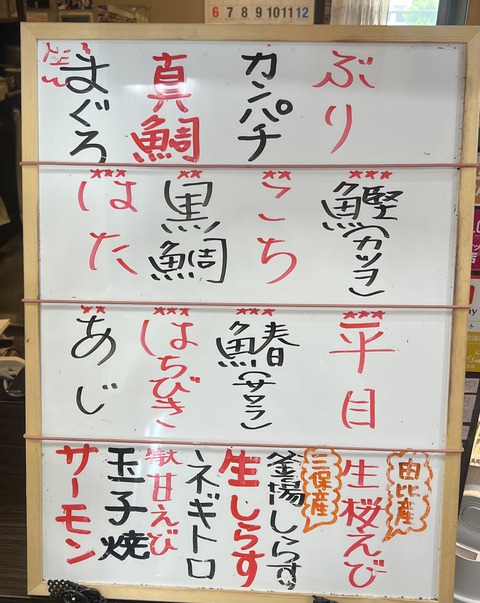 6 7 8 9 10 11 12
ぶり
カンパチ
真鯛
生
まぐろ
★★★
鰹(カツオ)
★★★
こち
★★★
黒鯛
★★★
はた
★★★
平目
★★★
鰆(サワラ)
★★★
はちびき
★★
あじ
由比産
生桜えび
三保産
釜揚しらす
生しらす
ネギトロ
甘えび
玉子焼
サーモン